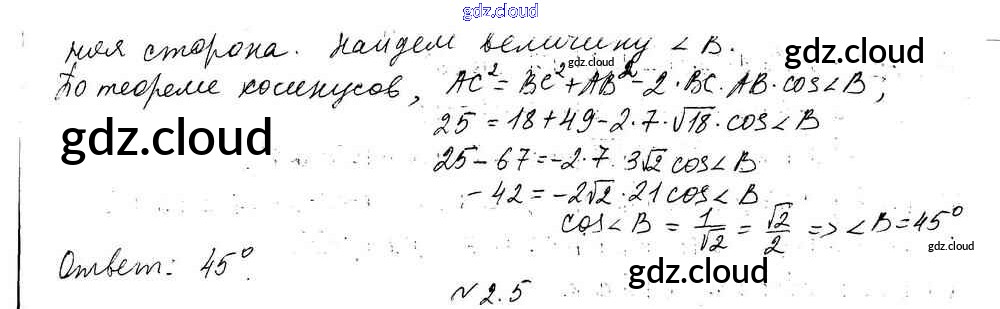 gdz.cloud
ная сторона. Найдем величину ∠B.
gdz.cloud
gdz.cloud
По теореме косинусов, AC² = BC² + AB² - 2·BC·AB·cos∠B;
gdz.cloud
gdz.cloud
25 = 18 + 49 - 2·7·√18·cos∠B
gdz.cloud
25 - 67 = -2·7·3√2 cos∠B
- 42 = -2√2·21 cos∠B
cos∠B = 1/√2 = √2/2 => ∠B = 45°
gdz.cloud
Ответ: 45°.
gdz.cloud
gdz.cloud
№ 2.5